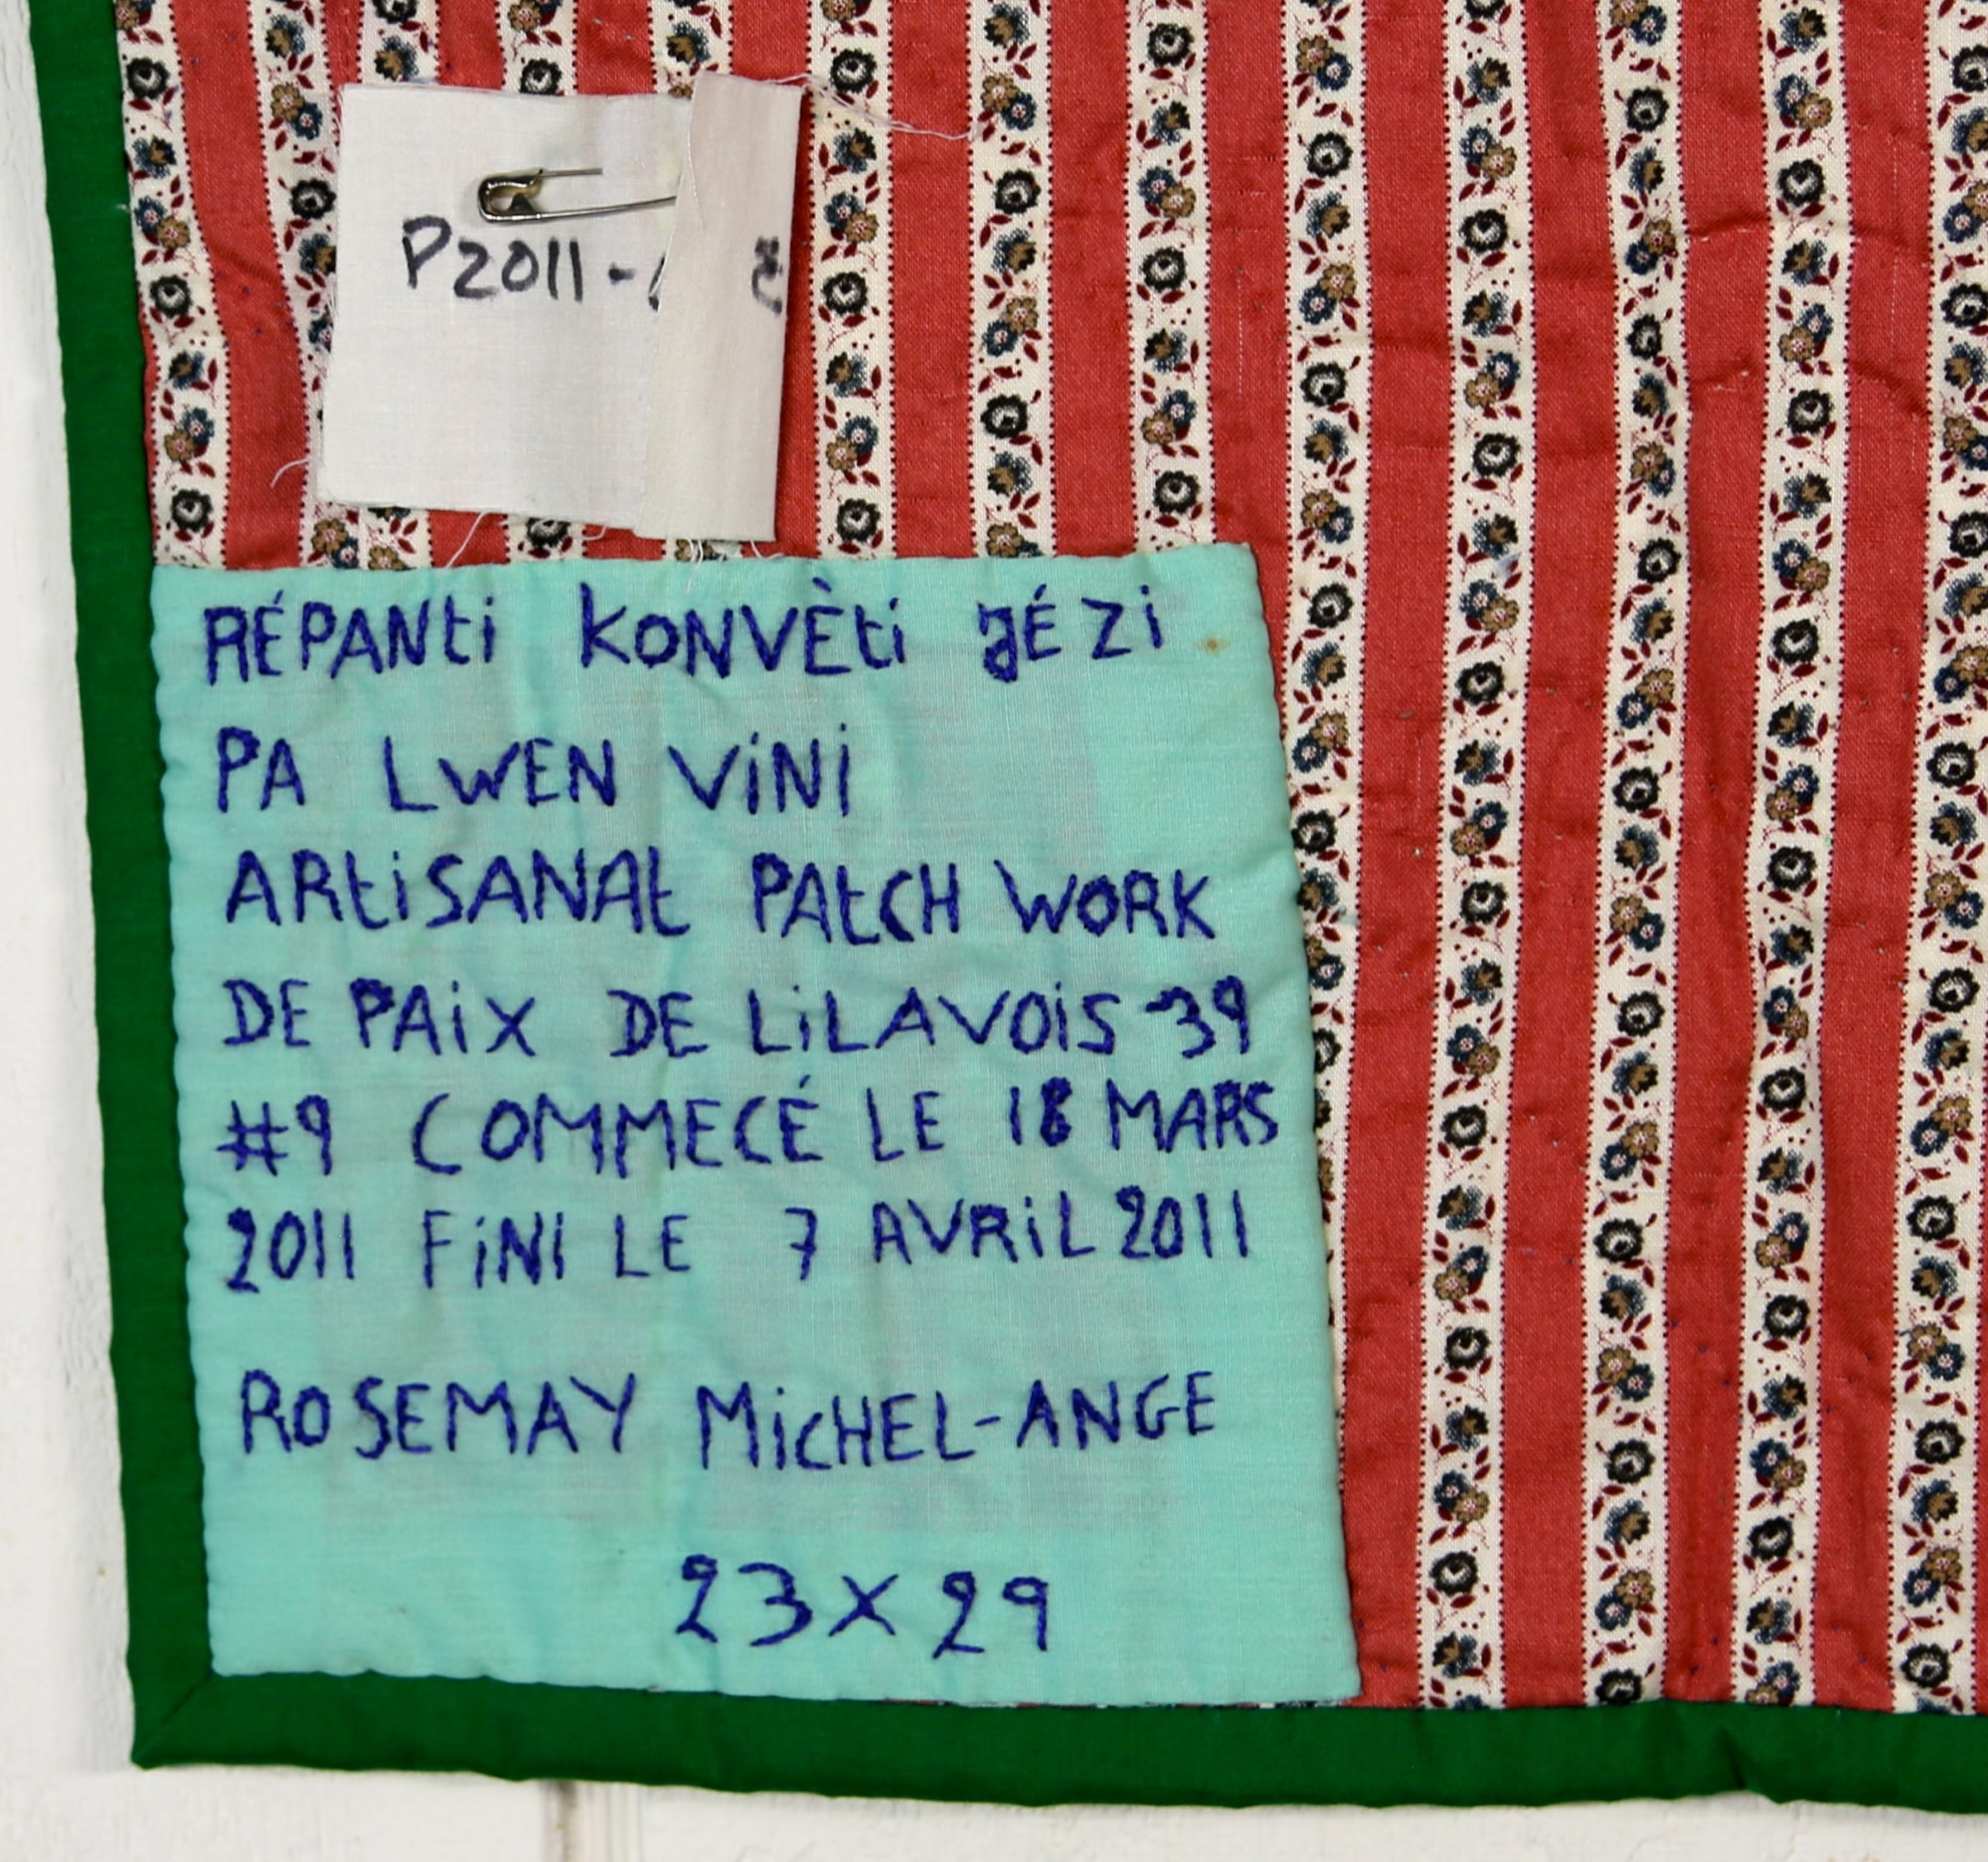 P2011-
RÉPANti KONVÈti JÉZi
PA LWEN ViNi
ARtiSANAt PAtCH WORK
DE PAiX DE LiLAVOiS 39
#9 COMMECÉ LE 18 MARS
2011 FiNI LE 7 AVRiL 2011
ROSEMAY MiCHEL-ANGE
23 X 29